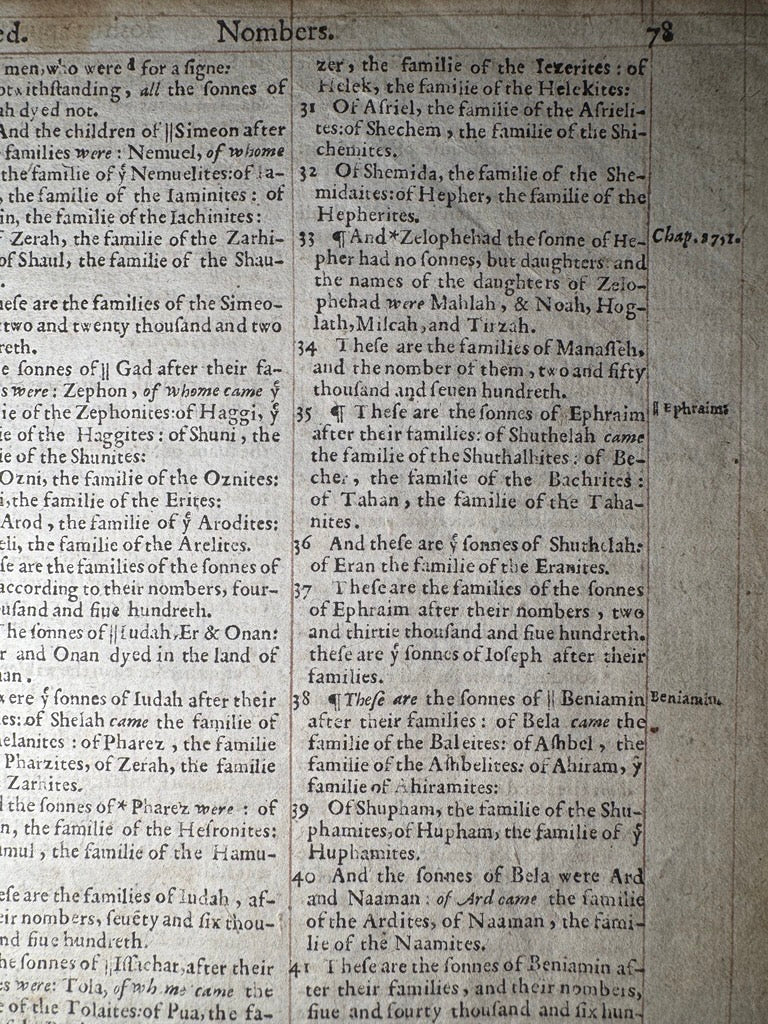 ed. Numbers. 78
men, who were d for a ſigne:
otwithſtanding, all the ſonnes of
ah dyed not.
And the children of ||Simeon after
families were: Nemuel, of whome
the familie of ẏ Nemuelites: of Ia-
, the familie of the Iaminites: of
in, the familie of the Iachinites:
f Zerah, the familie of the Zarhi-
of Shaul, the familie of the Shau-
.
heſe are the families of the Simeo-
two and twenty thouſand and two
reth.
e ſonnes of || Gad after their fa-
s were: Zephon, of whome came ẏ
ie of the Zephonites: of Haggi, ẏ
ie of the Haggites: of Shuni, the
ie of the Shunites:
Ozni, the familie of the Oznites:
i, the familie of the Erites:
Arod, the familie of ẏ Arodites:
eli, the familie of the Arelites.
ſe are the families of the ſonnes of
according to their nombers, four-
uſand and fiue hundreth.
The ſonnes of || Iudah, Er & Onan:
r and Onan dyed in the land of
an.
were ẏ ſonnes of Iudah after their
es: of Shelah came the familie of
elanites: of Pharez, the familie
Pharzites, of Zerah, the familie
Zarhites.
d the ſonnes of * Pharez were: of
n, the familie of the Heſronites:
amul, the familie of the Hamu-
eſe are the families of Iudah, af-
eir nombers, ſeuēty and ſix thou-
nd fiue hundreth.
he ſonnes of || Iſſachar, after their
s were: Tola, of whome came the
e of the Tolaites: of Pua, the fa-
zer, the familie of the Iezerites: of
Helek, the familie of the Helekites:
31 Of Aſriel, the familie of the Aſrieli-
tes: of Shechem, the familie of the Shi-
chemites.
32 Of Shemida, the familie of the She-
midaites: of Hepher, the familie of the
Hepherites.
33 ¶ And * Zelophehad the ſonne of He-
pher had no ſonnes, but daughters: and
the names of the daughters of Zelo-
phehad were Mahlah, & Noah, Hog-
lath, Milcah, and Tirzah.
34 Theſe are the families of Manaſſeh,
and the nomber of them, two and fifty
thouſand and ſeuen hundreth.
35 ¶ Theſe are the ſonnes of Ephraim
after their families: of Shuthelah came
the familie of the Shuthalhites: of Be-
cher, the familie of the Bachrites:
of Tahan, the familie of the Taha-
nites.
36 And theſe are ẏ ſonnes of Shuthelah:
of Eran the familie of the Eranites.
37 Theſe are the families of the ſonnes
of Ephraim after their nombers, two
and thirtie thouſand and fiue hundreth.
theſe are ẏ ſonnes of Ioſeph after their
families.
38 ¶ Theſe are the ſonnes of || Beniamin
after their families: of Bela came the
familie of the Baleites: of Aſhbel, the
familie of the Aſhbelites: of Ahiram, ẏ
familie of Ahiramites:
39 Of Shupham, the familie of the Shu-
phamites, of Hupham, the familie of ẏ
Huphamites.
40 And the ſonnes of Bela were Ard
and Naaman: of Ard came the familie
of the Ardites, of Naaman, the fami-
lie of the Naamites.
41 Theſe are the ſonnes of Beniamin af-
ter their families, and their nombers,
fiue and fourty thouſand and ſix hun-
Chap. 27,1.
|| Ephraim
Beniamin.